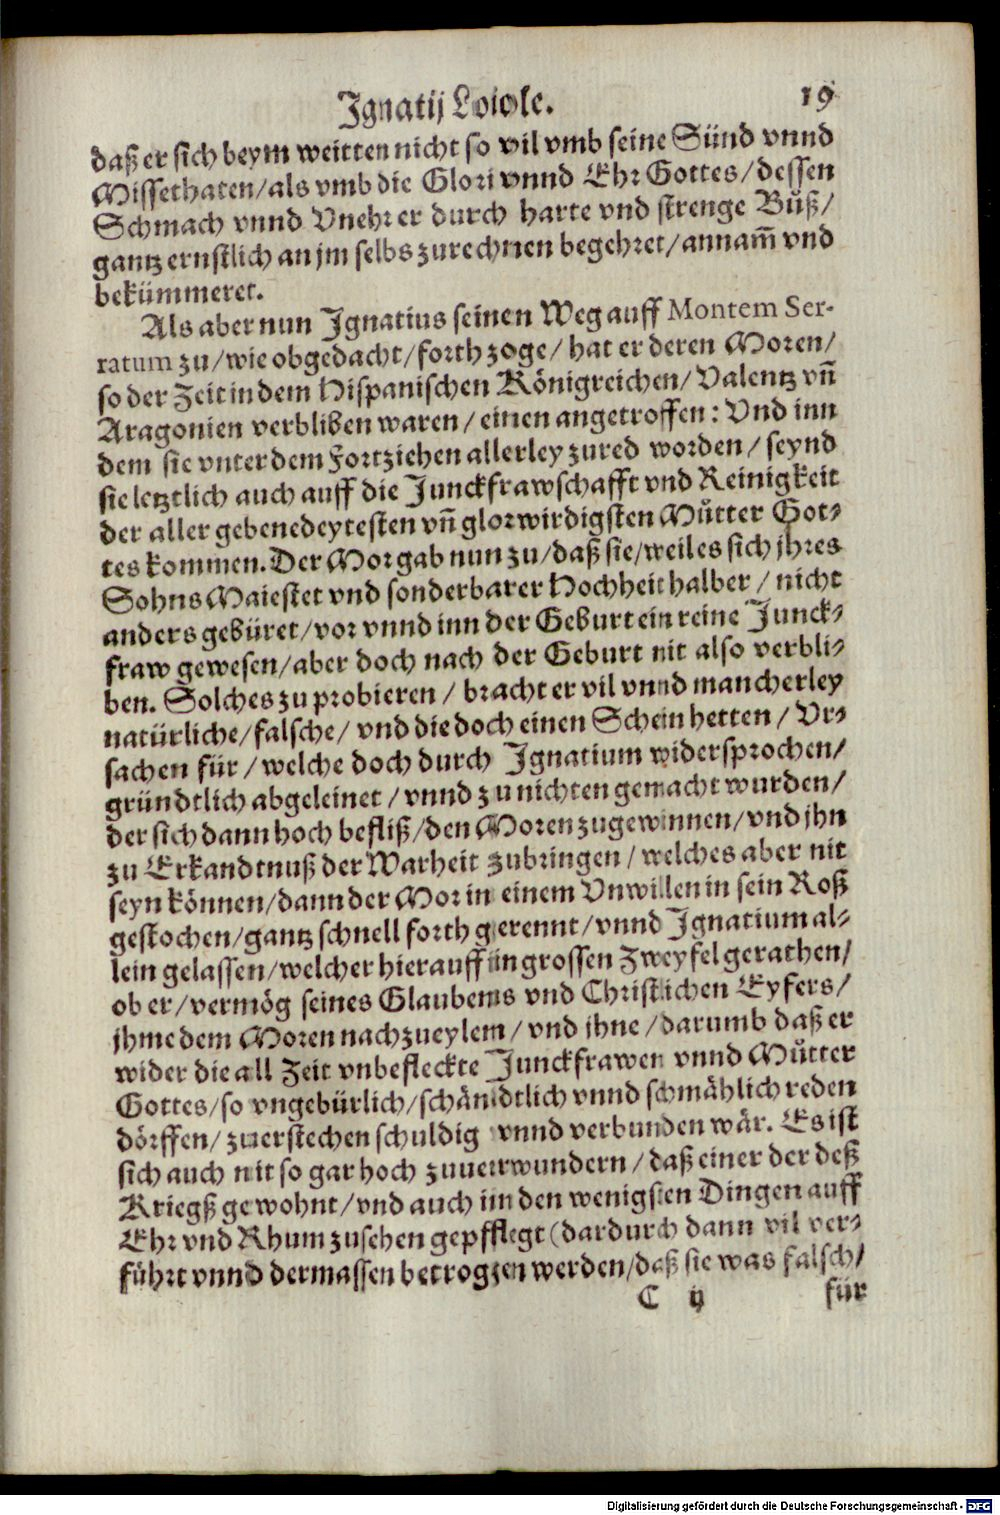 Ignatij Loiole. 19
daß er sich beym weitten nicht so vil vmb seine Sünd vnnd
Missethaten/als vmb die Glori vnnd Ehr Gottes/dessen
Schmach vnnd Vnehr er durch harte vnd strenge Buß/
gantz ernstlich an jm selbs zurechnen begehret/annam̃ vnd
bekümmeret.
Als aber nun Ignatius seinen Weg auff Montem Ser-
ratum zu/wie obgedacht/forth zoge/hat er deren Moren/
so der Zeit in dem Hispanischen Königreichen/Valentz vñ
Aragonien verbliben waren/einen angetroffen: Vnd inn
dem sie vnter dem Fortziehen allerley zured worden/seynd
sie letztlich auch auff die Junckfrawschafft vnd Reinigkeit
der aller gebenedeytesten vñ glorwirdigsten Můtter Got-
tes kommen. Der Mor gab nun zu/daß sie/weil es sich jhres
Sohns Maiestet vnd sonderbarer Hochheit halber/nicht
anders gebüret/vor vnnd inn der Geburt ein reine Junck-
fraw gewesen/aber doch nach der Geburt nit also verbli-
ben. Solches zu probieren/bracht er vil vnnd mancherley
natürliche/falsche/vnd die doch einen Schein hetten/Vr-
sachen für/welche doch durch Ignatium widersprochen/
gründtlich abgeleinet/vnnd zu nichten gemacht wurden/
der sich dann hoch befliß/den Moren zugewinnen/vnd jhn
zu Erkandtnuß der Warheit zubringen/welches aber nit
seyn können/dann der Mor in einem Vnwillen in sein Roß
gestochen/gantz schnell forth gerennt/vnnd Ignatium al-
lein gelassen/welcher hierauff in grossen Zweyfel gerathen/
ob er/vermög seines Glaubens vnd Christlichen Eyfers/
jhme dem Moren nachzueylem/vnd jhne/darumb daß er
wider die all Zeit vnbefleckte Junckfrawen vnnd Můtter
Gottes/so vngebürlich/schändtlich vnnd schmählich reden
dörffen/zuerstechen schuldig vnnd verbunden wär. Es ist
sich auch nit so gar hoch zuuerwundern/daß einer der deß
Kriegß gewohnt/vnd auch in den wenigsten Dingen auff
Ehr vnd Rhum zusehen gepfflegt (dardurch dann vil ver-
führt vnnd dermassen betrogzen werden/daß sie was falsch/
C ij für
Digitalisierung gefördert durch die Deutsche Forschungsgemeinschaft - DFG